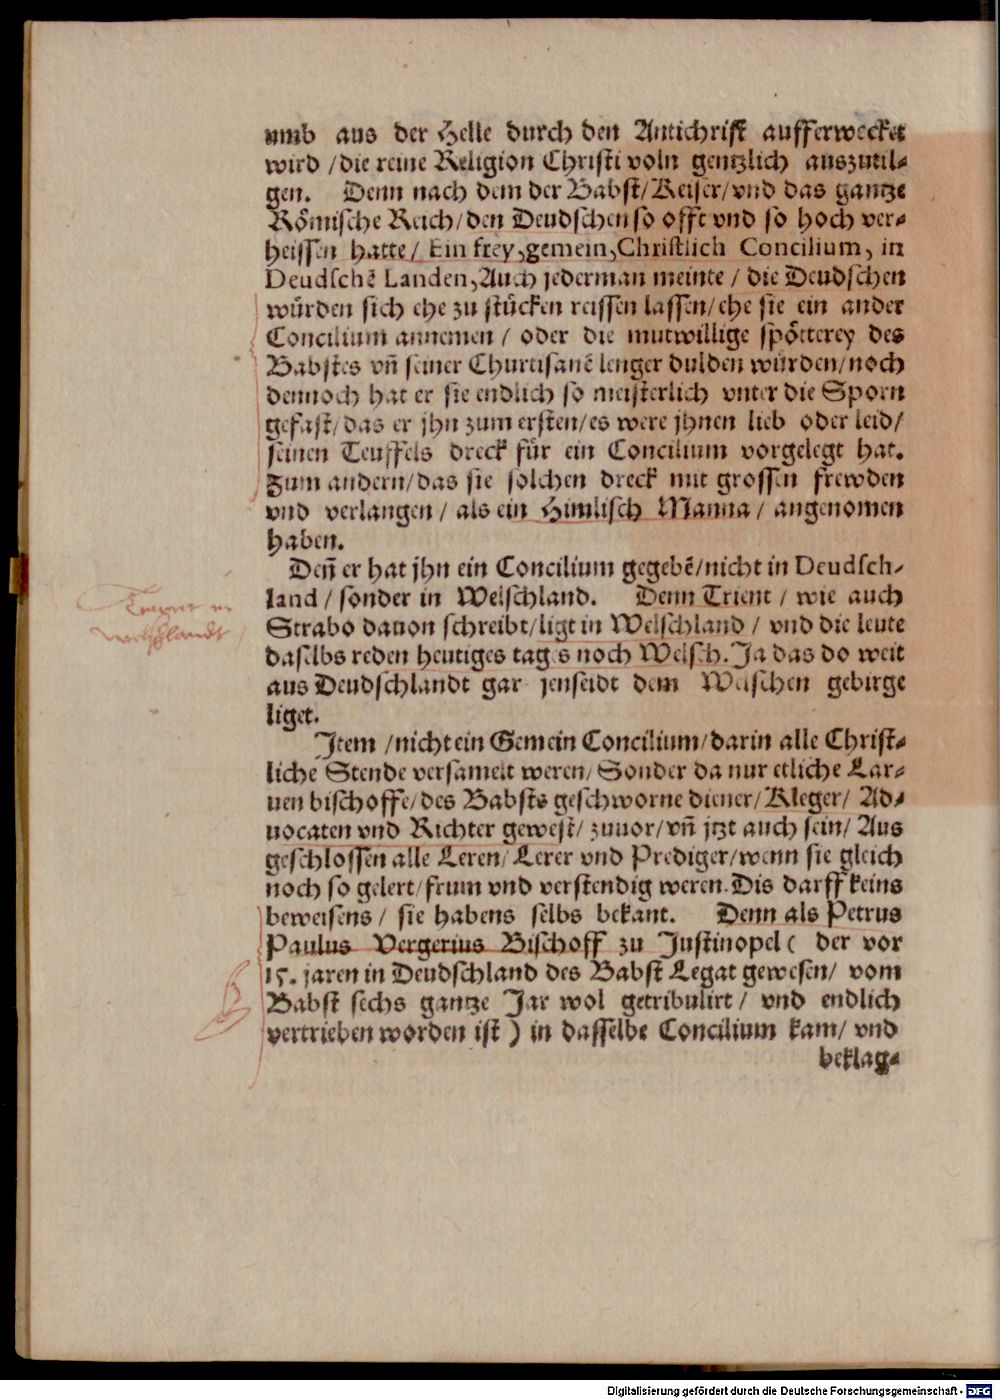 umb aus der Helle durch den Antichrist aufferwecket
wird / die reine Religion Christi voln gentzlich auszutil⸗
gen. Denn nach dem der Babst/ Keiser/ vnd das gantze
Römische Reich/ den Deudschen so offt vnd so hoch ver⸗
heissen hatte/ Ein frey, gemein, Christlich Concilium, in
Deudschē Landen, Auch jederman meinte / die Deudschen
würden sich ehe zu stücken reissen lassen/ ehe sie ein ander
Concilium annemen / oder die mutwillige spötterey des
Babstes vñ seiner Churtisanē lenger dulden würden/ noch
dennoch hat er sie endlich so meisterlich vnter die Sporn
gefast/ das er jhn zum ersten/ es were jhnen lieb oder leid/
seinen Teuffels dreck für ein Concilium vorgelegt hat.
Zum andern/ das sie solchen dreck mit grossen frewden
vnd verlangen / als ein Himlisch Manna / angenomen
haben.
Deñ er hat jhn ein Concilium gegebē/ nicht in Deudsch⸗
land / sonder in Welschland. Denn Trient / wie auch
Strabo dauon schreibt/ ligt in Welschland / vnd die leute
daselbs reden heutiges tages noch Welsch. Ja das do weit
aus Deudschlandt gar jenseidt dem Welschen gebirge
liget.
Trient in
Welschlandt
Jtem / nicht ein Gemein Concilium/ darin alle Christ⸗
liche Stende versamelt weren/ Sonder da nur etliche Lar⸗
uen bischoffe/ des Babsts geschworne diener/ Kleger/ Ad⸗
uocaten vnd Richter gewest/ zuuor/ vñ jtzt auch sein/ Aus
geschlossen alle Leren/ Lerer vnd Prediger/ wenn sie gleich
noch so gelert/ frum vnd verstendig weren. Dis darff keins
beweisens / sie habens selbs bekant. Denn als Petrus
Paulus Vergerius Bischoff zu Justinopel ( der vor
15. jaren in Deudschland des Babst Legat gewesen/ vom
Babst sechs gantze Jar wol getribulirt / vnd endlich
vertrieben worden ist ) in dasselbe Concilium kam/ vnd
beklag⸗
Digitalisierung gefördert durch die Deutsche Forschungsgemeinschaft - DFG